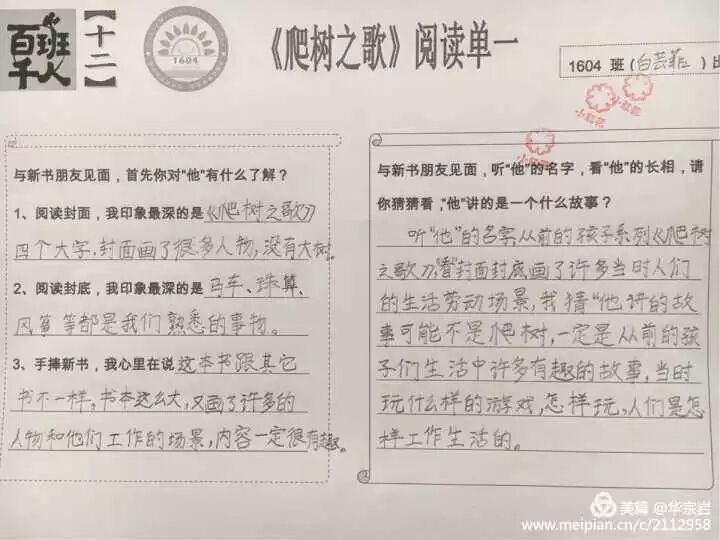 百班千人
【十二】
1604
《爬树之歌》阅读单一
1604 班(白芸菲)出
小红花
小红花
小红花
与新书朋友见面，首先你对“他”有什么了解？
1、阅读封面，我印象最深的是《爬树之歌》
四个大字，封面画了很多人物，没有大树。
2、阅读封底，我印象最深的是马车、珠算、
风筝等都是我们熟悉的事物。
3、手捧新书，我心里在说这本书跟其它
书不一样，书本这么大，又画了许多的
人物和他们工作的场景，内容一定很有趣。
与新书朋友见面，听“他”的名字，看“他”的长相，请
你猜猜看，“他”讲的是一个什么故事？
听“他”的名字从前的孩子系列《爬树
之歌》，“看”封面封底画了许多当时人们
的生活劳动场景，我猜“他讲的故
事可能不是爬树，一定是从前的孩
子们生活中许多有趣的故事，当时
玩什么样的游戏，怎样玩，人们是怎
样工作生活的。
美篇 @华宗岩
www.meipian.cn/c/2112958